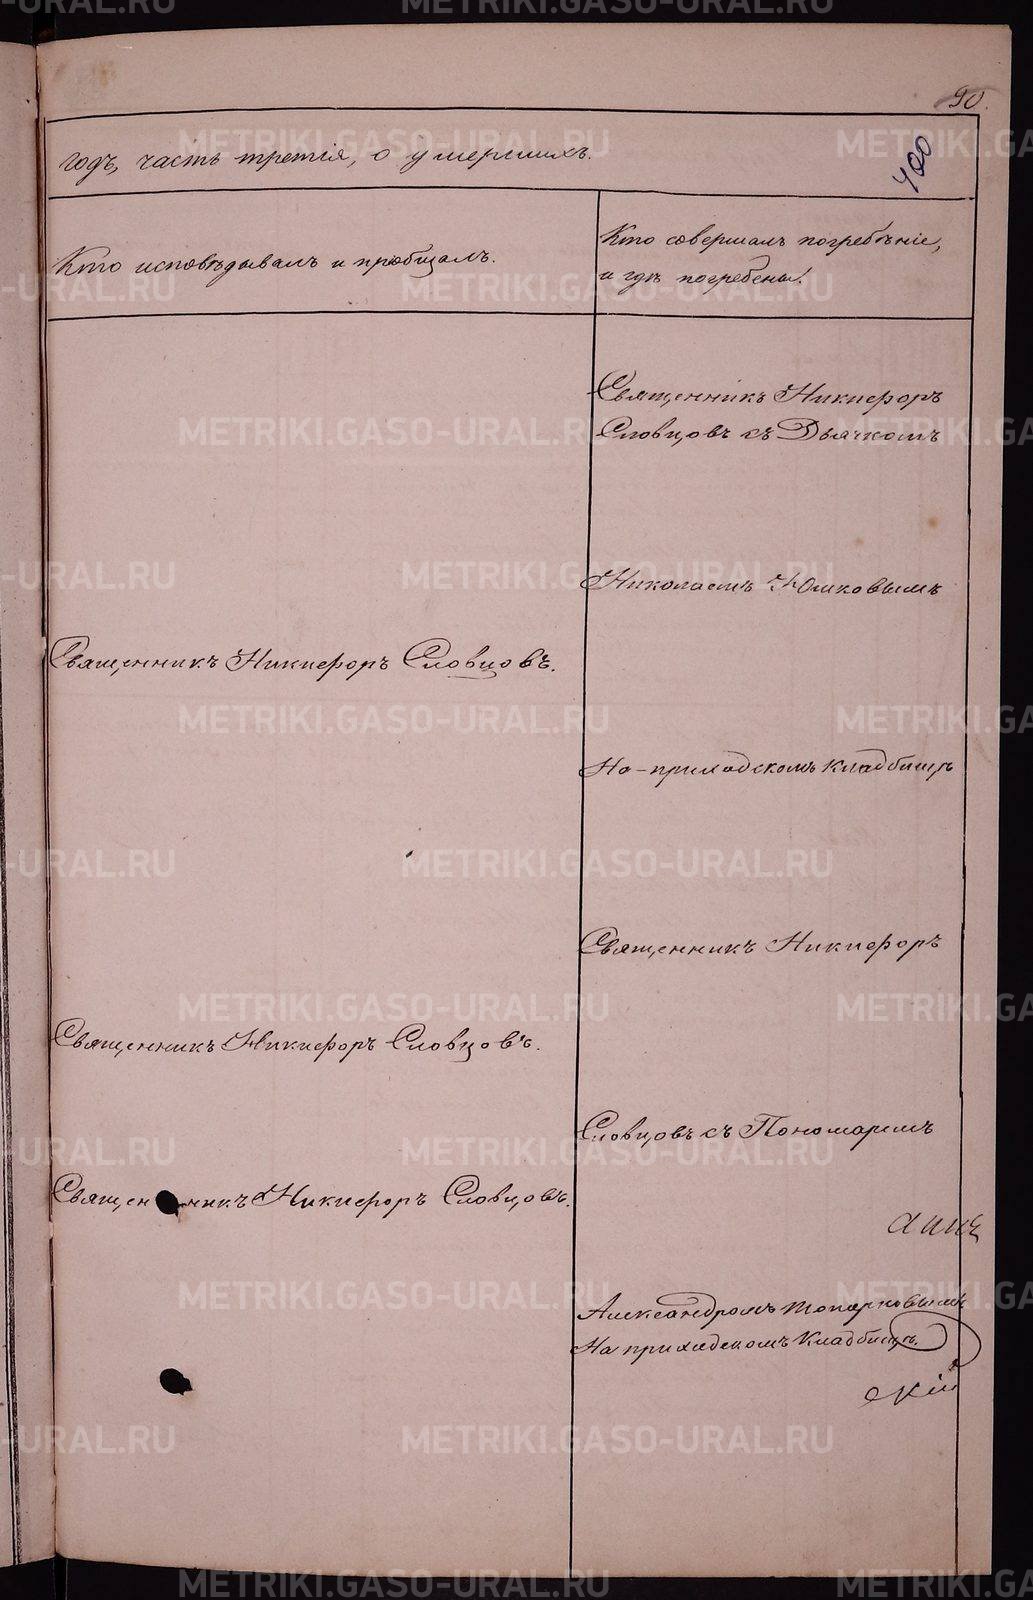 90.
400
годъ, часть третія, о умершихъ.
Кто исповѣдывалъ и пріобщалъ.
Кто совершалъ погребѣніе,
и гдѣ погребены.
Священникъ Никифоръ
Словцовъ съ Дьячкомъ
Николаемъ Юшковымъ
Священникъ Никифоръ Словцовъ.
На-приходскомъ кладбищѣ
Священникъ Никифоръ
Священникъ Никифоръ Словцовъ.
Словцовъ съ Пономаремъ
Священникъ Никифоръ Словцовъ.
Александромъ Топарковымъ
На приходскомъ Кладбищѣ.
скій
METRIKI.GASO-URAL.RU